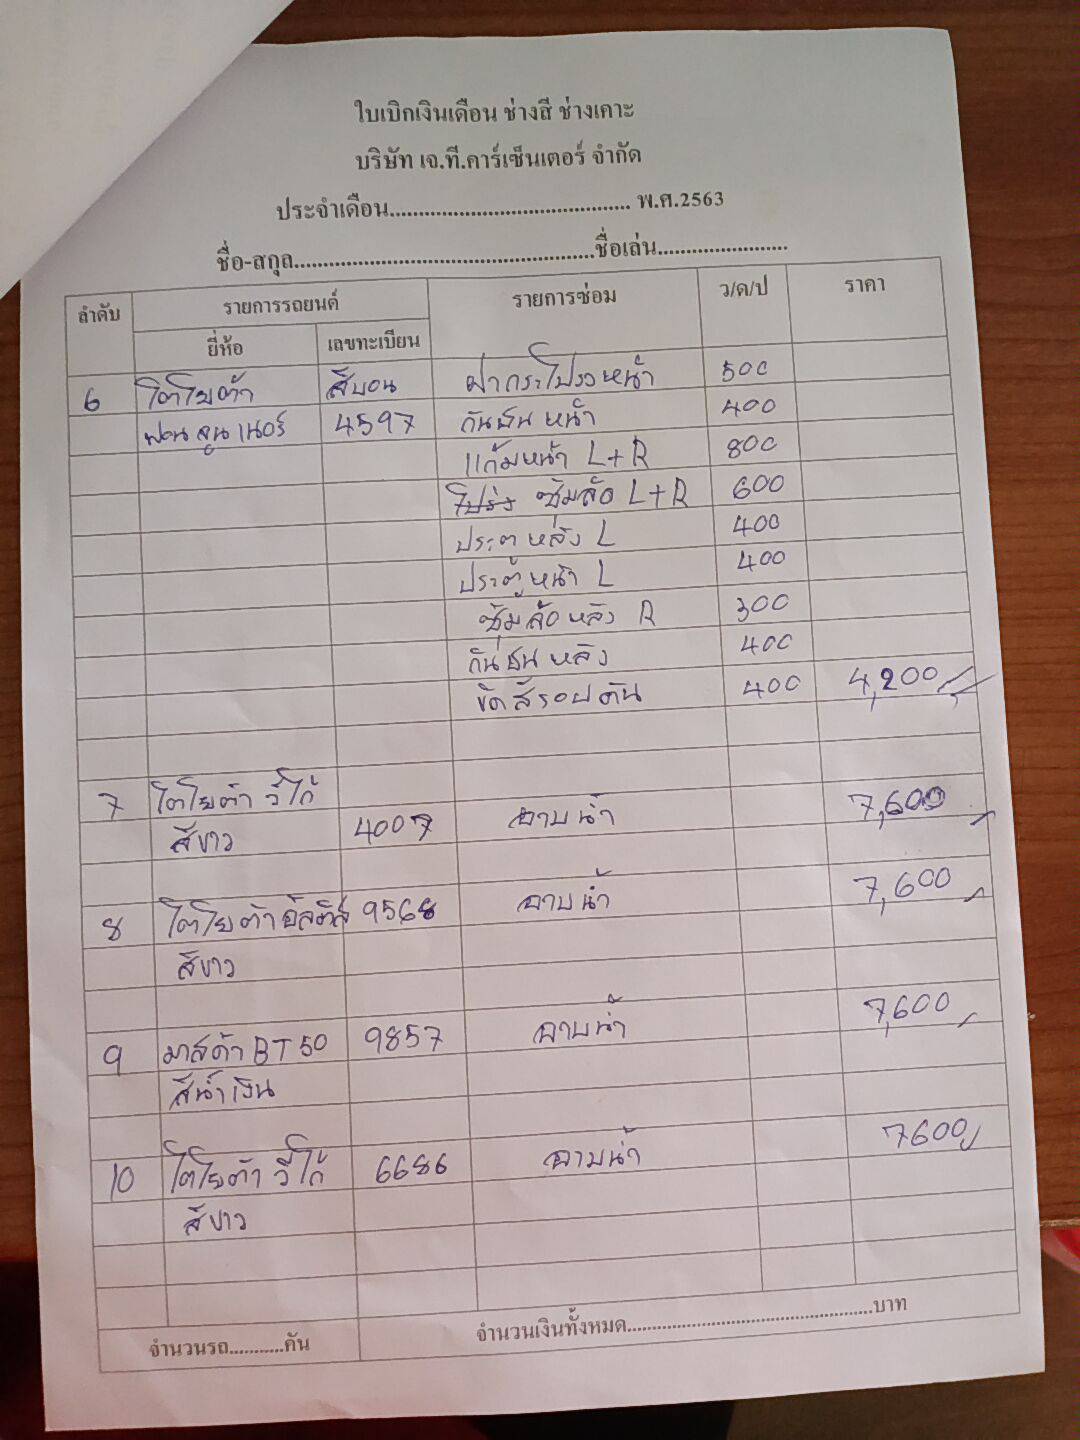 ใบเบิกเงินเดือน ช่างสี ช่างเคาะ
บริษัท เจ.ที.คาร์เซ็นเตอร์ จำกัด
ประจำเดือน......................................... พ.ศ.2563
ชื่อ-สกุล...................................................ชื่อเล่น......................
ลำดับ รายการรถยนต์ รายการซ่อม ว/ด/ป ราคา
ยี่ห้อ เลขทะเบียน
6 โตโยต้า สีบอน ฝากระโปรงหน้า 500
ฟอนจูนเนอร์ 4597 กันชนหน้า 400
แก้มหน้า L+R 800
โป่ง ซุ้มล้อ L+R 600
ประตูหลัง L 400
ประตูหน้า L 400
ซุ้มล้อหลัง R 300
กันชนหลัง 400
ขัดสีรอบคัน 400 4,200
7 โตโยต้า วีโก้ 7,600
สีขาว 4007 อาบน้ำ
8 โตโยต้า อัลติส 9568 อาบน้ำ 7,600
สีขาว
9 มาสด้า BT50 9857 อาบน้ำ 7,600
สีน้ำเงิน
10 โตโยต้า วีโก้ 6686 อาบน้ำ 7600
สีขาว
จำนวนรถ...........คัน จำนวนเงินทั้งหมด.............................................บาท